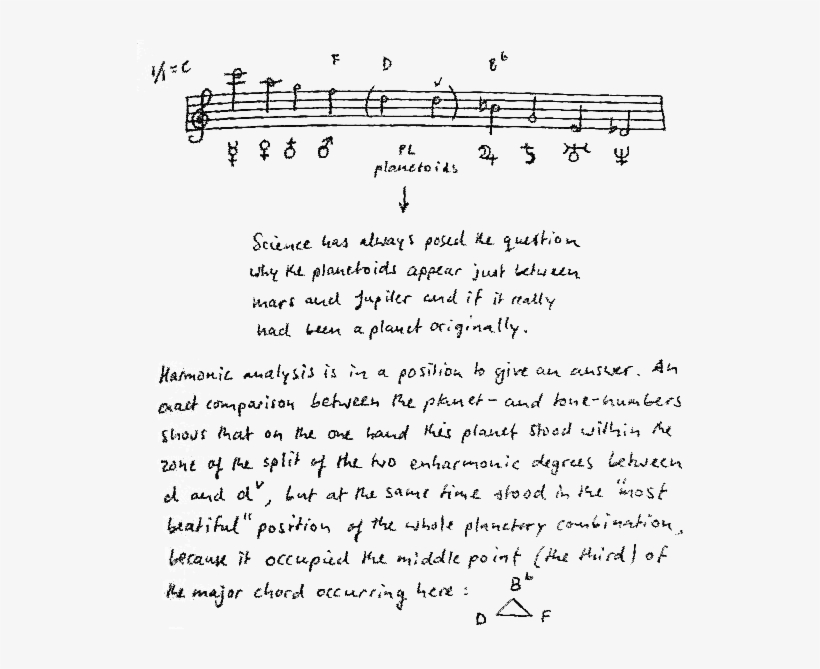 1/1=C
F D Bb
PL
planetoids
Science has always posed the question
why the planetoids appear just between
mars and Jupiter and if it really
had been a planet originally.
Harmonic analysis is in a position to give an answer. An
exact comparison between the planet- and tone-numbers
shows that on the one hand this planet stood within the
zone of the split of the two enharmonic degrees between
d and dv, but at the same time stood in the "most
beatiful" position of the whole planetary combination,
because it occupied the middle point (the third) of
the major chord occurring here:
Bb
D F